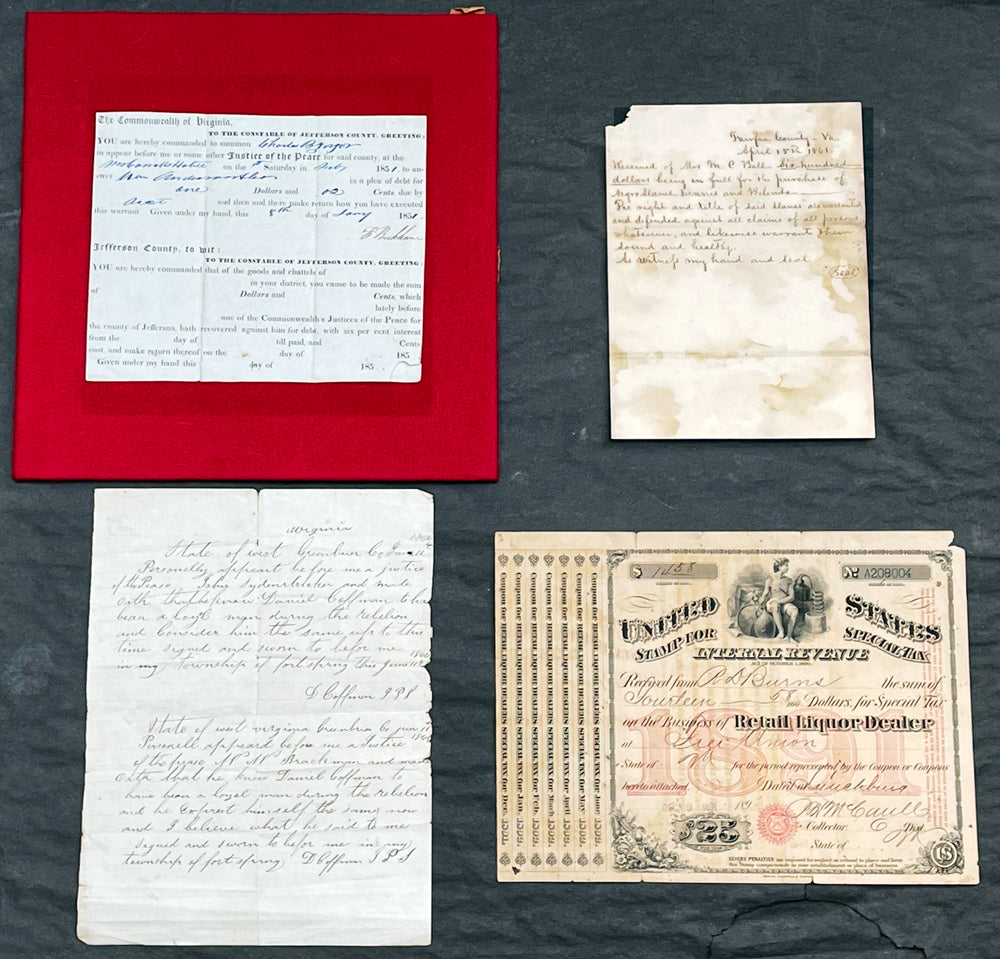 The Commonwealth of Virginia,
TO THE CONSTABLE OF JEFFERSON COUNTY, GREETING:
YOU are hereby commanded to summon Charles
to appear before me or some other Justice of the Peace for said county, at the
on the Saturday in 1851, to an-
swer
in a plea of debt for
one Dollars and 02 Cents, due by
and then and there make return how you have executed
this warrant. Given under my hand, this 8th day of Jany 1851.
Jefferson County, to wit:
TO THE CONSTABLE OF JEFFERSON COUNTY, GREETING:
YOU are hereby commanded that of the goods and chattels of
in your district, you cause to be made the sum
of Dollars and Cents, which
lately before
one of the Commonwealth's Justices of the Peace for
the county of Jefferson, hath recovered against him for debt, with six per cent. interest
from the day of till paid, and Cents
cost, and make return thereof on the day of 185
Given under my hand this day of 185
Fairfax County - Va.
April 15th 1861.
Received of Mrs M C Ball Six hundred
dollars being in full for the purchase of
negro slaves and
The right and title of said slaves are warranted
and defended against all claims of all persons
whatsoever, and likewise warrant them
sound and healthy.
As witness my hand and seal
Seal
virginia
State of west Greenbrier Co June 11
Personelly appeart before me a justice
of the Pease John and made
Oath that he new Daniel Coffman to ha
bean a loyl man during the rebelion
and Consider him the same up to this
time signed and sworn to befor me
in my Township of fort spring this June 11 1866
D Coffman J P S
State of west virginia Greenbrier Co June 11
Personell appeart before me a Justice
of the pease Brackman and made
Oath that he knew Daniel Coffman to
have bean a loyel man during the rebelion
and he Exprest himself the same now
and I believe what he said to me
signed and sworn to before me in my
township of fort spring D Coffman J P S
$ 1458
No A208004
UNITED STATES
STAMP FOR SPECIAL TAX
INTERNAL REVENUE
Received from R D Burns the sum of
Fourteen 58/100 Dollars, for Special Tax
on the Business of Retail Liquor Dealer
at Union
State of Va for the period represented by the Coupon or Coupons
hereto attached. Dated at Lynchburg
Collector 6 Dist.
State of
$25
US
1891
SEVERE PENALTIES are imposed for neglect or refusal to place and keep
this Stamp conspicuously in your establishment or place of business.
Coupon for RETAIL LIQUOR DEALERS SPECIAL TAX for Dec.
Coupon for RETAIL LIQUOR DEALERS SPECIAL TAX for Jan.
Coupon for RETAIL LIQUOR DEALERS SPECIAL TAX for Feb.
Coupon for RETAIL LIQUOR DEALERS SPECIAL TAX for March
Coupon for RETAIL LIQUOR DEALERS SPECIAL TAX for April
Coupon for RETAIL LIQUOR DEALERS SPECIAL TAX for May
Coupon for RETAIL LIQUOR DEALERS SPECIAL TAX for June